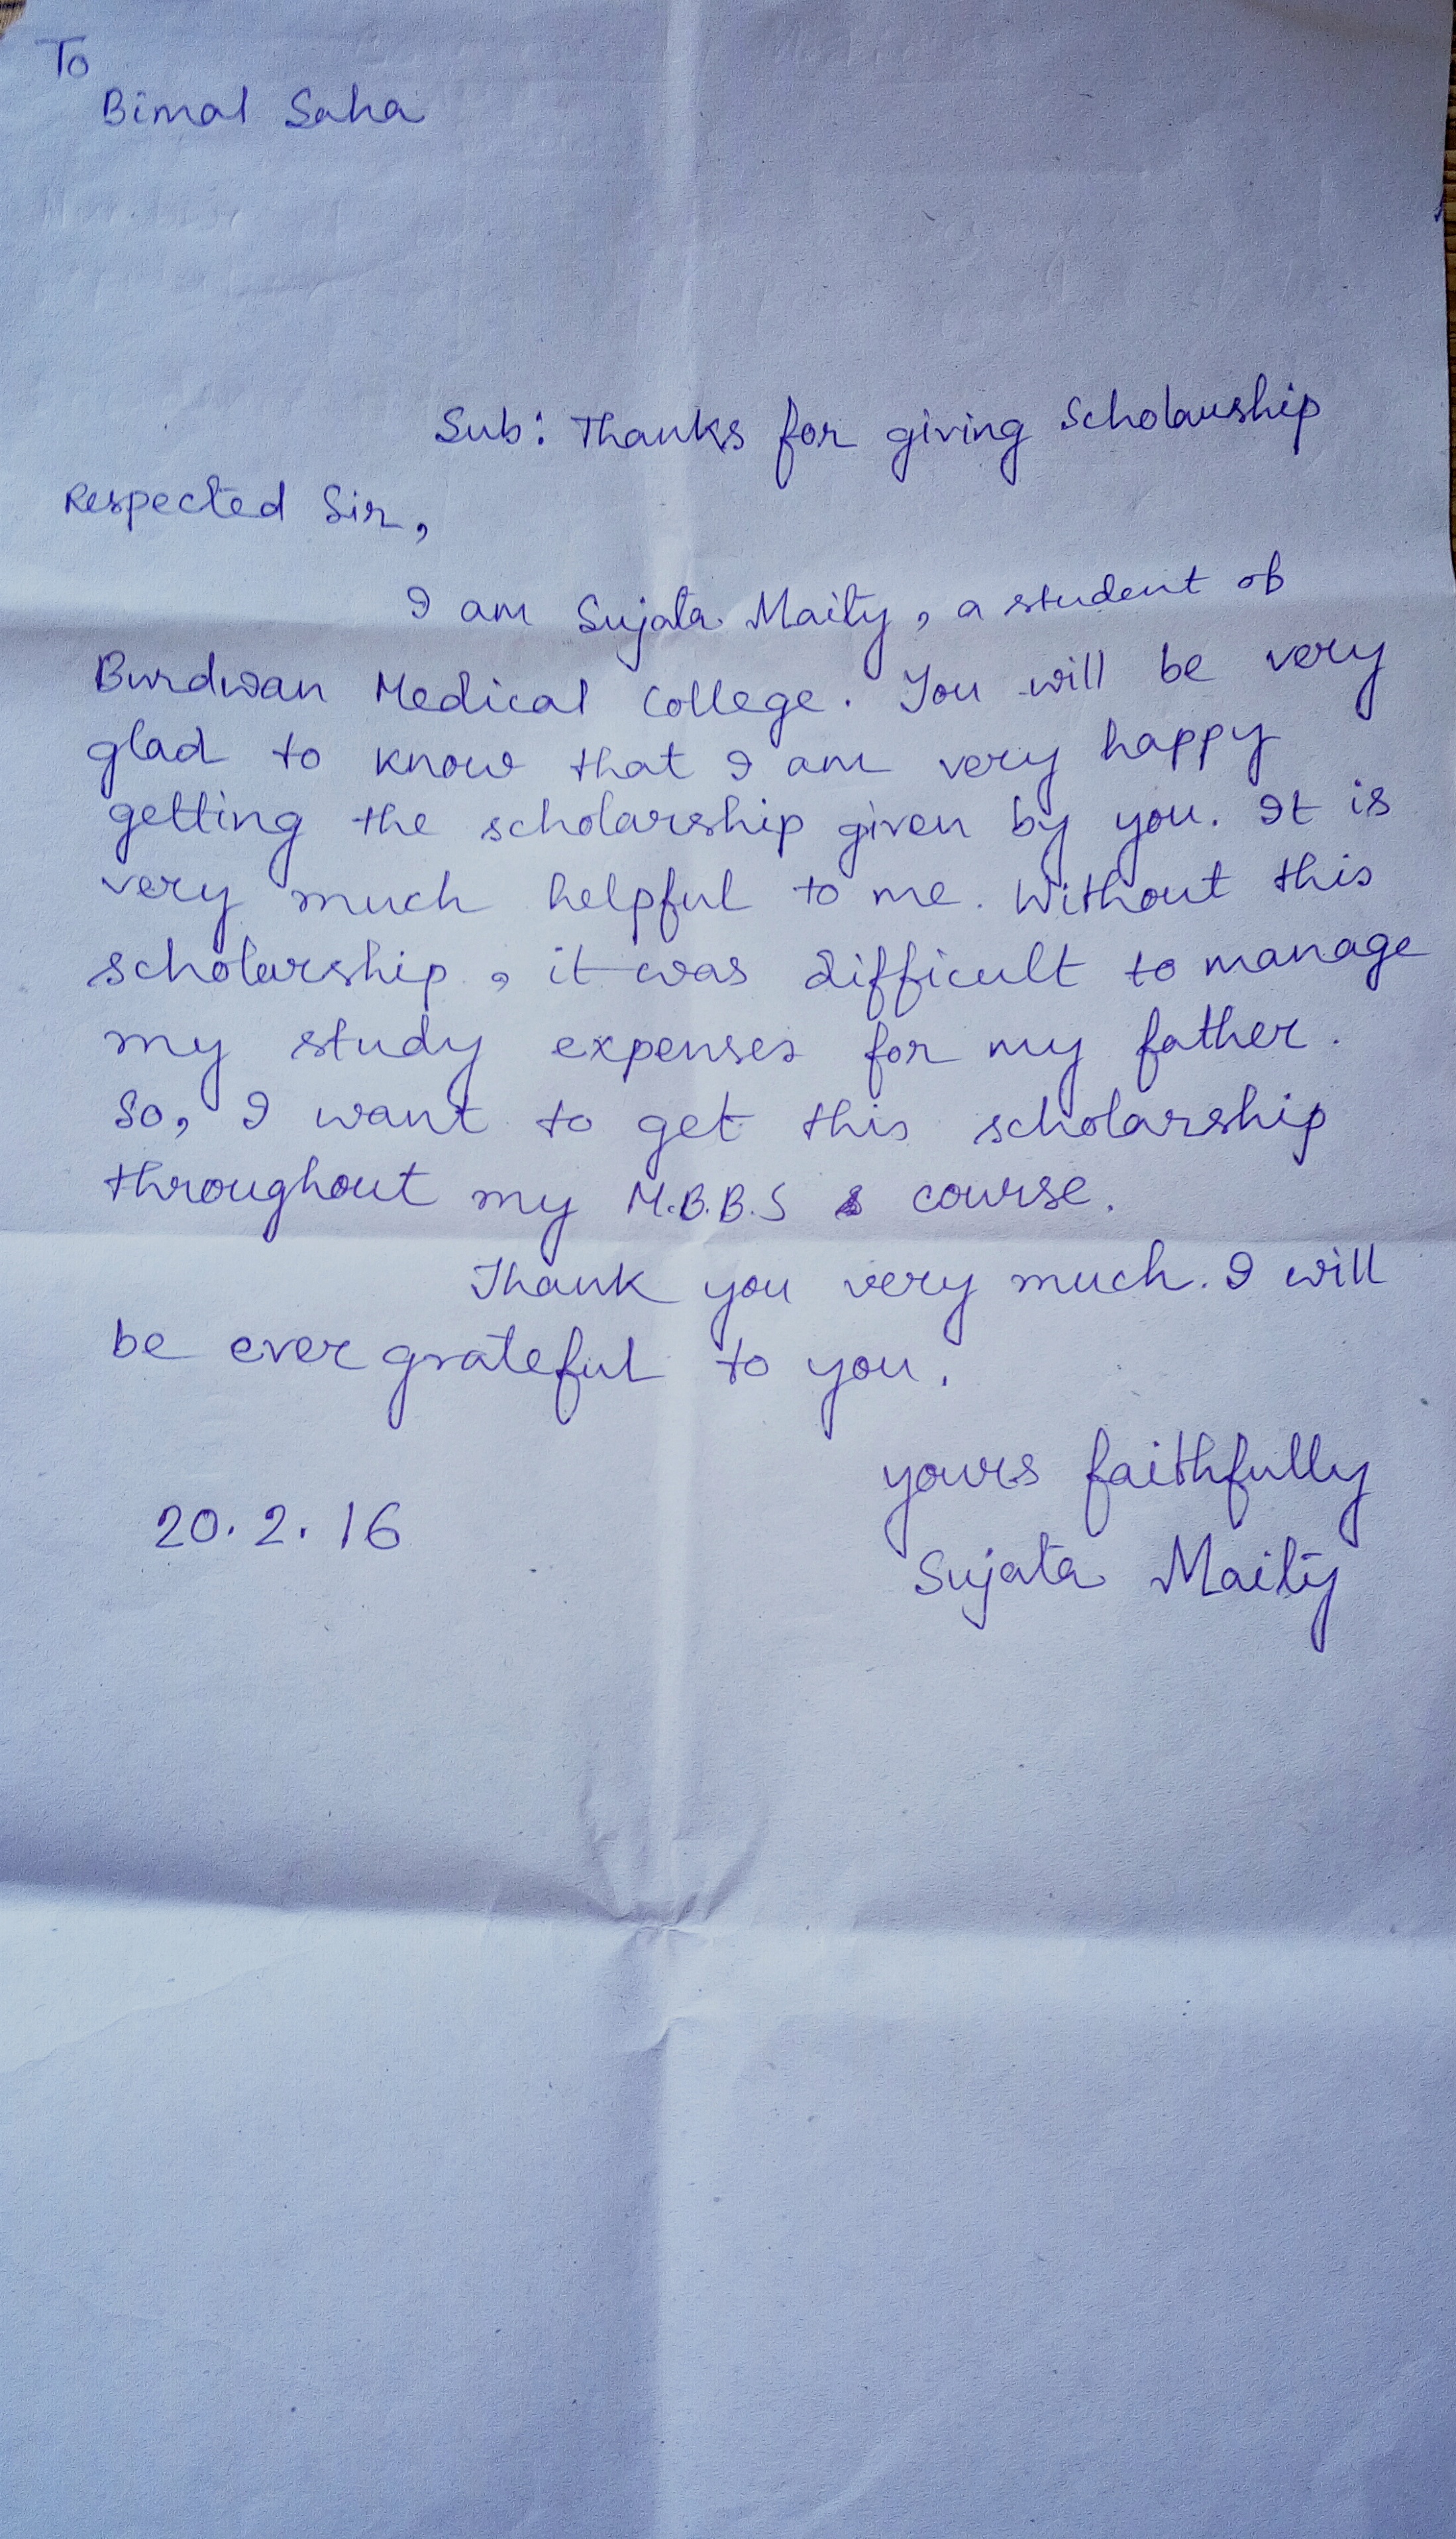 To
Bimal Saha
Sub: Thanks for giving Scholarship
Respected Sir,
I am Sujata Maity, a student of
Burdwan Medical College. You will be very
glad to know that I am very happy
getting the scholarship given by you. It is
very much helpful to me. Without this
scholarship, it was difficult to manage
my study expenses for my father.
So, I want to get this scholarship
throughout my M.B.B.S course.
Thank you very much. I will
be ever grateful to you.
yours faithfully
20.2.16
Sujata Maity